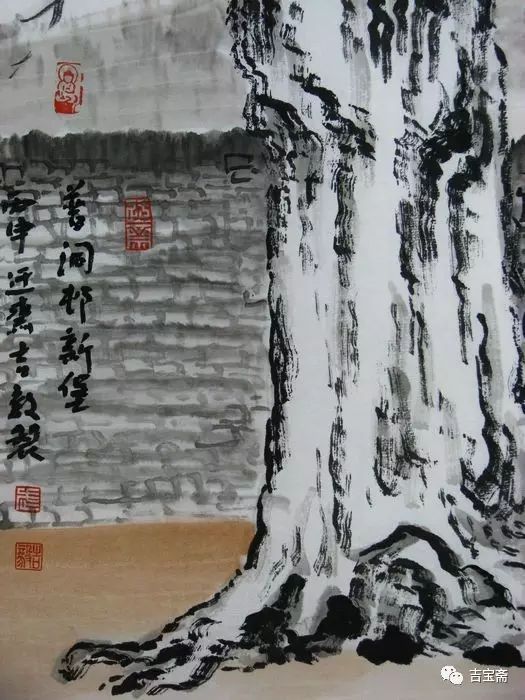 普洞邨新堡
丙申迂斋吉毅製
吉宝斋